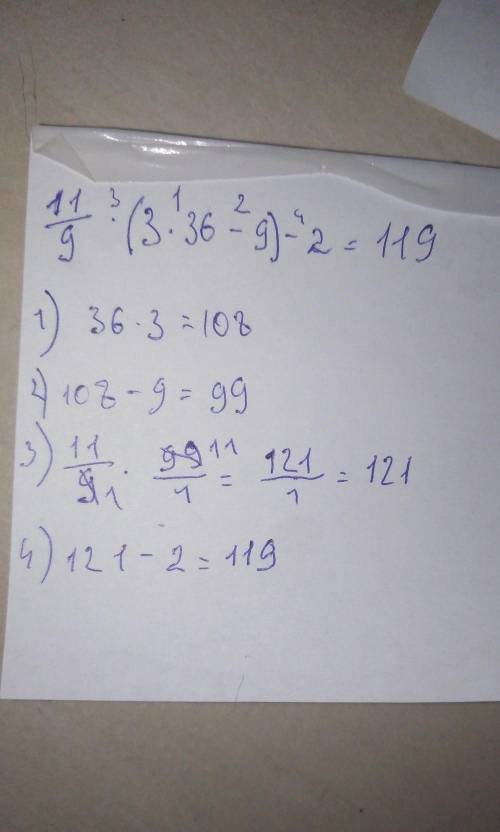 11/9 ·³ (3 ·¹ 36 -² 9) -⁴ 2 = 119
1) 36 · 3 = 108
2) 108 - 9 = 99
3) 11/9 1 · 99 11/1 = 121/1 = 121
4) 121 - 2 = 119